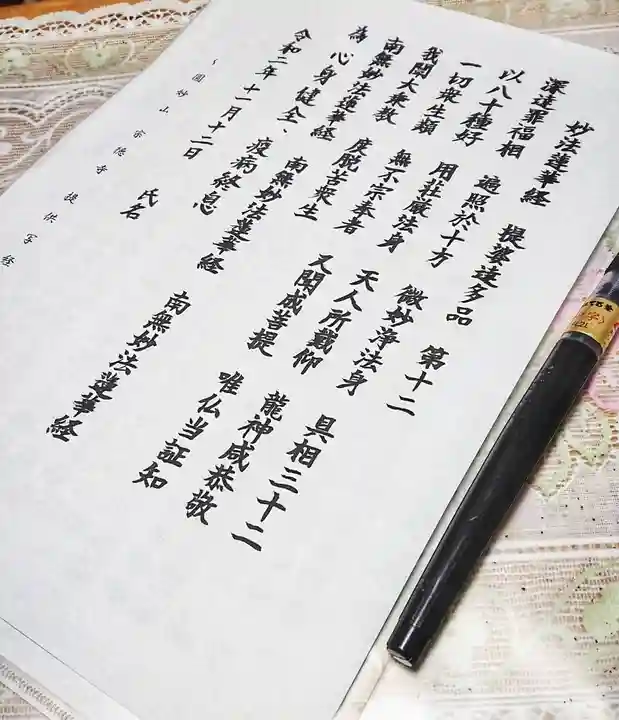 妙法蓮華経 提婆達多品 第十二
深達罪福相 遍照於十方 微妙浄法身 具相三十二
以八十種好 用荘厳法身 天人所戴仰 龍神咸恭敬
一切衆生類 無不宗奉者 又聞成菩提 唯仏当証知
我闡大乗教 度脱苦衆生
南無妙法蓮華経 南無妙法蓮華経 南無妙法蓮華経
為 心身健全、 疫病終息
令和二年十一月十二日 氏名
圓妙山 宗徳寺 提供写経